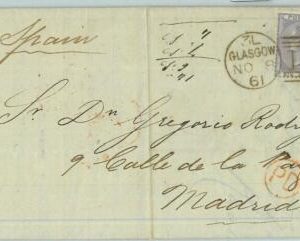 Spain
GLASGOW
NO 8
61
Sr. Dn Gregorio Rodri
9 Calle de la
Madrid
PD